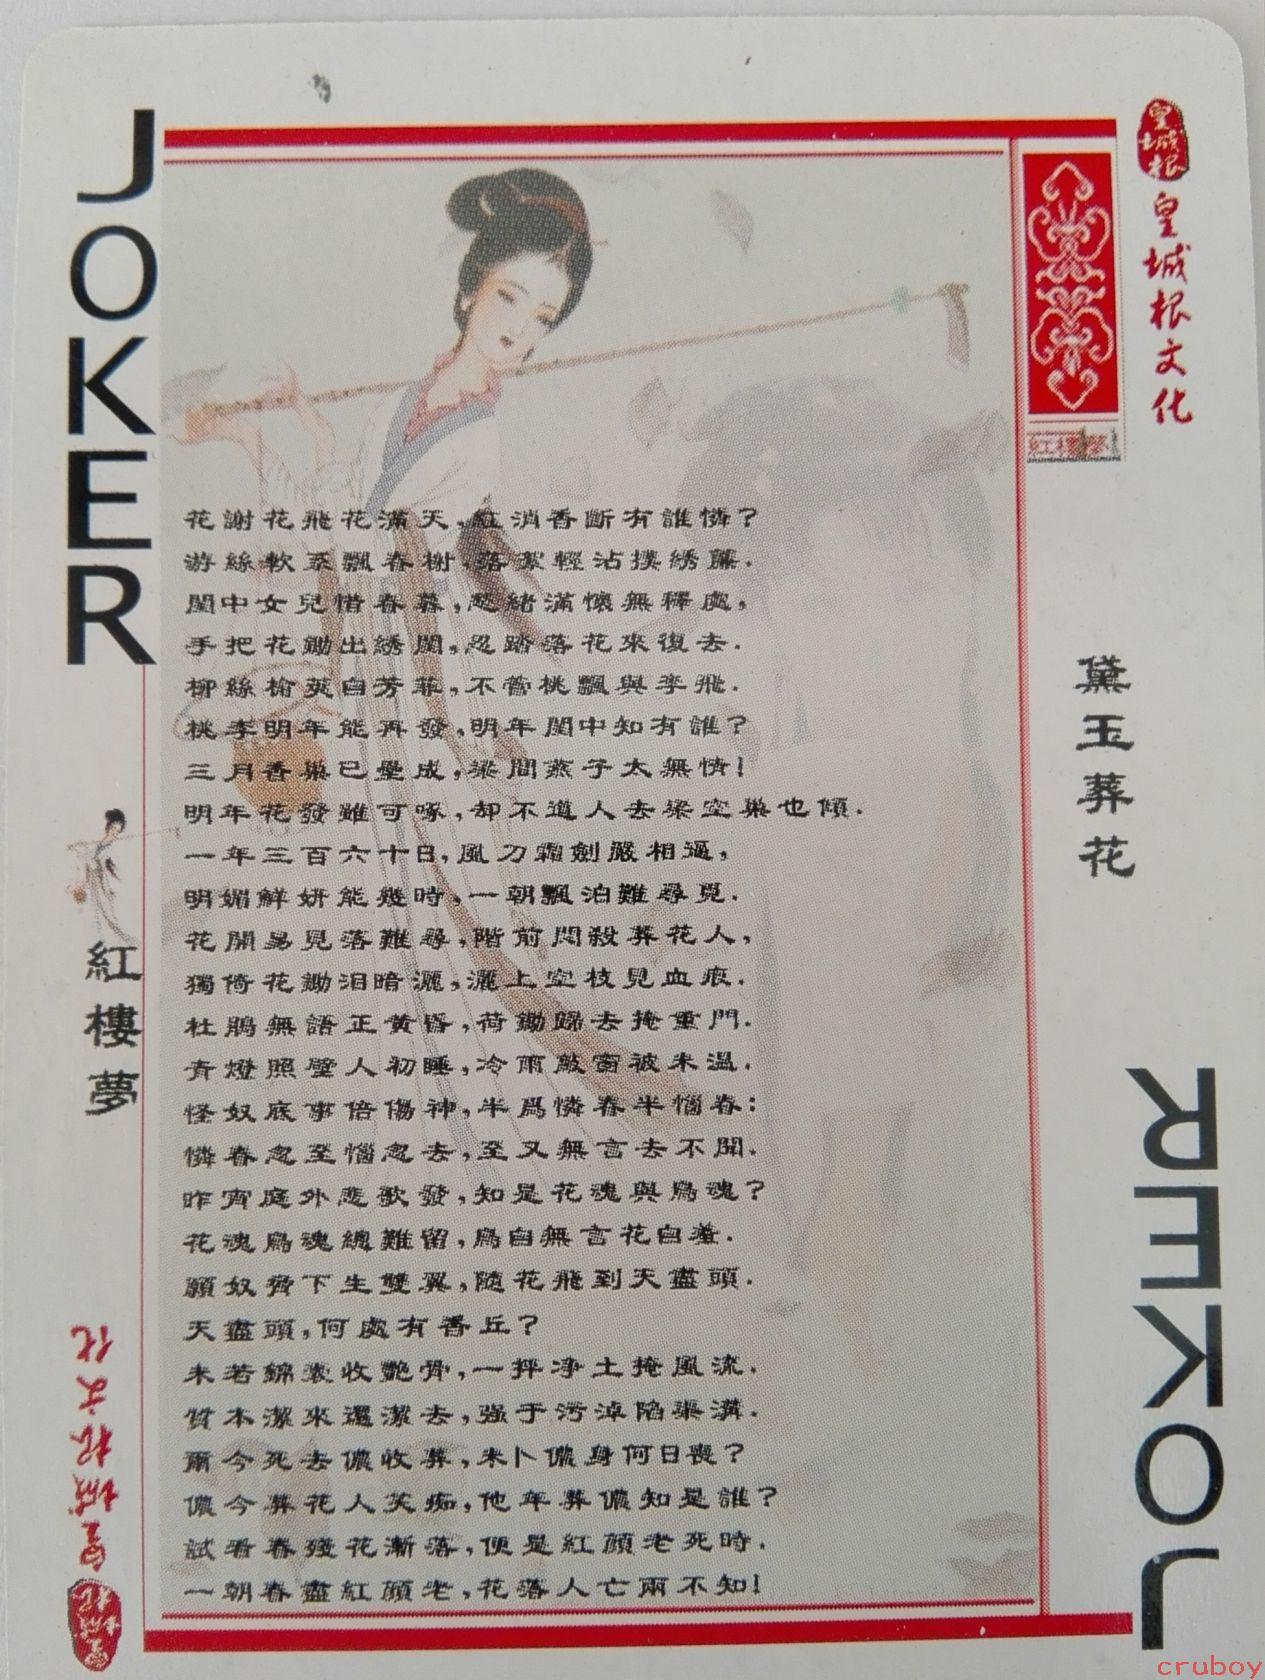 JOKER
皇城根
皇城根文化
紅樓夢
花謝花飛花滿天,紅消香斷有誰憐?
游絲軟系飄春榭,落絮輕沾撲綉簾.
閨中女兒惜春暮,愁緒滿懷無釋處,
手把花鋤出綉閨,忍踏落花來復去.
柳絲榆莢自芳菲,不管桃飄與李飛.
桃李明年能再發,明年閨中知有誰?
三月香巢已壘成,梁間燕子太無情!
明年花發雖可啄,却不道人去梁空巢也傾.
一年三百六十日,風刀霜劍嚴相逼,
明媚鮮妍能幾時,一朝飄泊難尋覓.
花開易見落難尋,階前悶殺葬花人,
獨倚花鋤泪暗灑,灑上空枝見血痕.
杜鵑無語正黄昏,荷鋤歸去掩重門.
青燈照壁人初睡,冷雨敲窗被未温.
怪奴底事倍傷神,半爲憐春半惱春:
憐春忽至惱忽去,至又無言去不聞.
昨宵庭外悲歌發,知是花魂與鳥魂?
花魂鳥魂總難留,鳥自無言花自羞.
願奴脅下生雙翼,隨花飛到天盡頭.
天盡頭,何處有香丘?
未若錦囊收艷骨,一抔净土掩風流.
質本潔來還潔去,强于污淖陷渠溝.
爾今死去儂收葬,未卜儂身何日喪?
儂今葬花人笑痴,他年葬儂知是誰?
試看春殘花漸落,便是紅顔老死時.
一朝春盡紅顔老,花落人亡兩不知!
黛玉葬花
紅樓夢
皇城根文化
皇城根
JOKER
cruboy